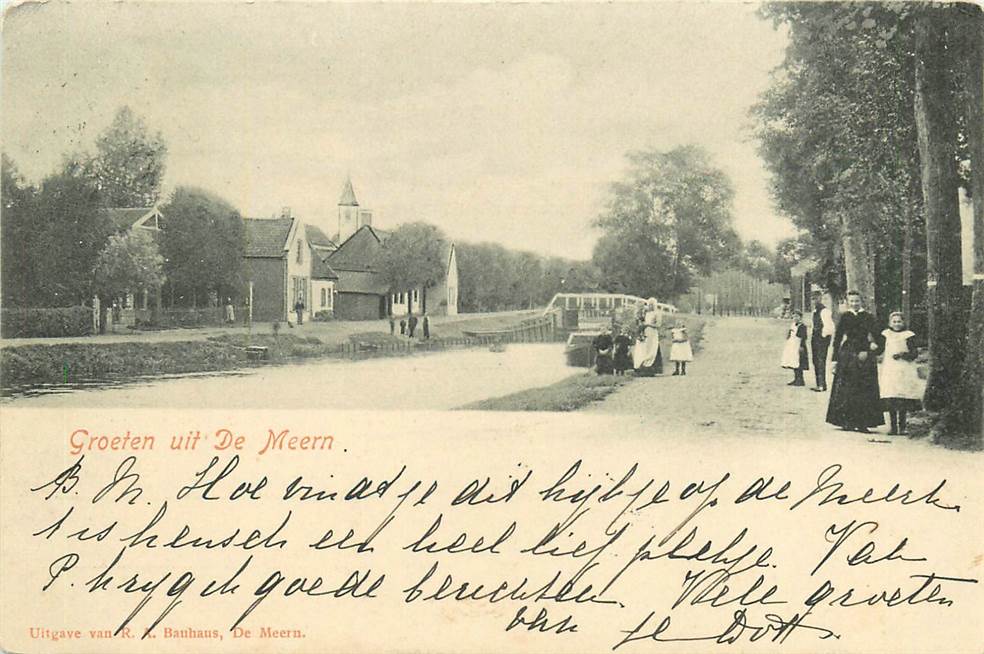 Groeten uit De Meern.
B. M. Hoe vindt je dit kijkje op de Meerk.
t is heusch een heel lief plekje. Van
P. krijg ik goede berichten. Vele groeten
van je Dott.
Uitgave van R. A. Bauhaus, De Meern.